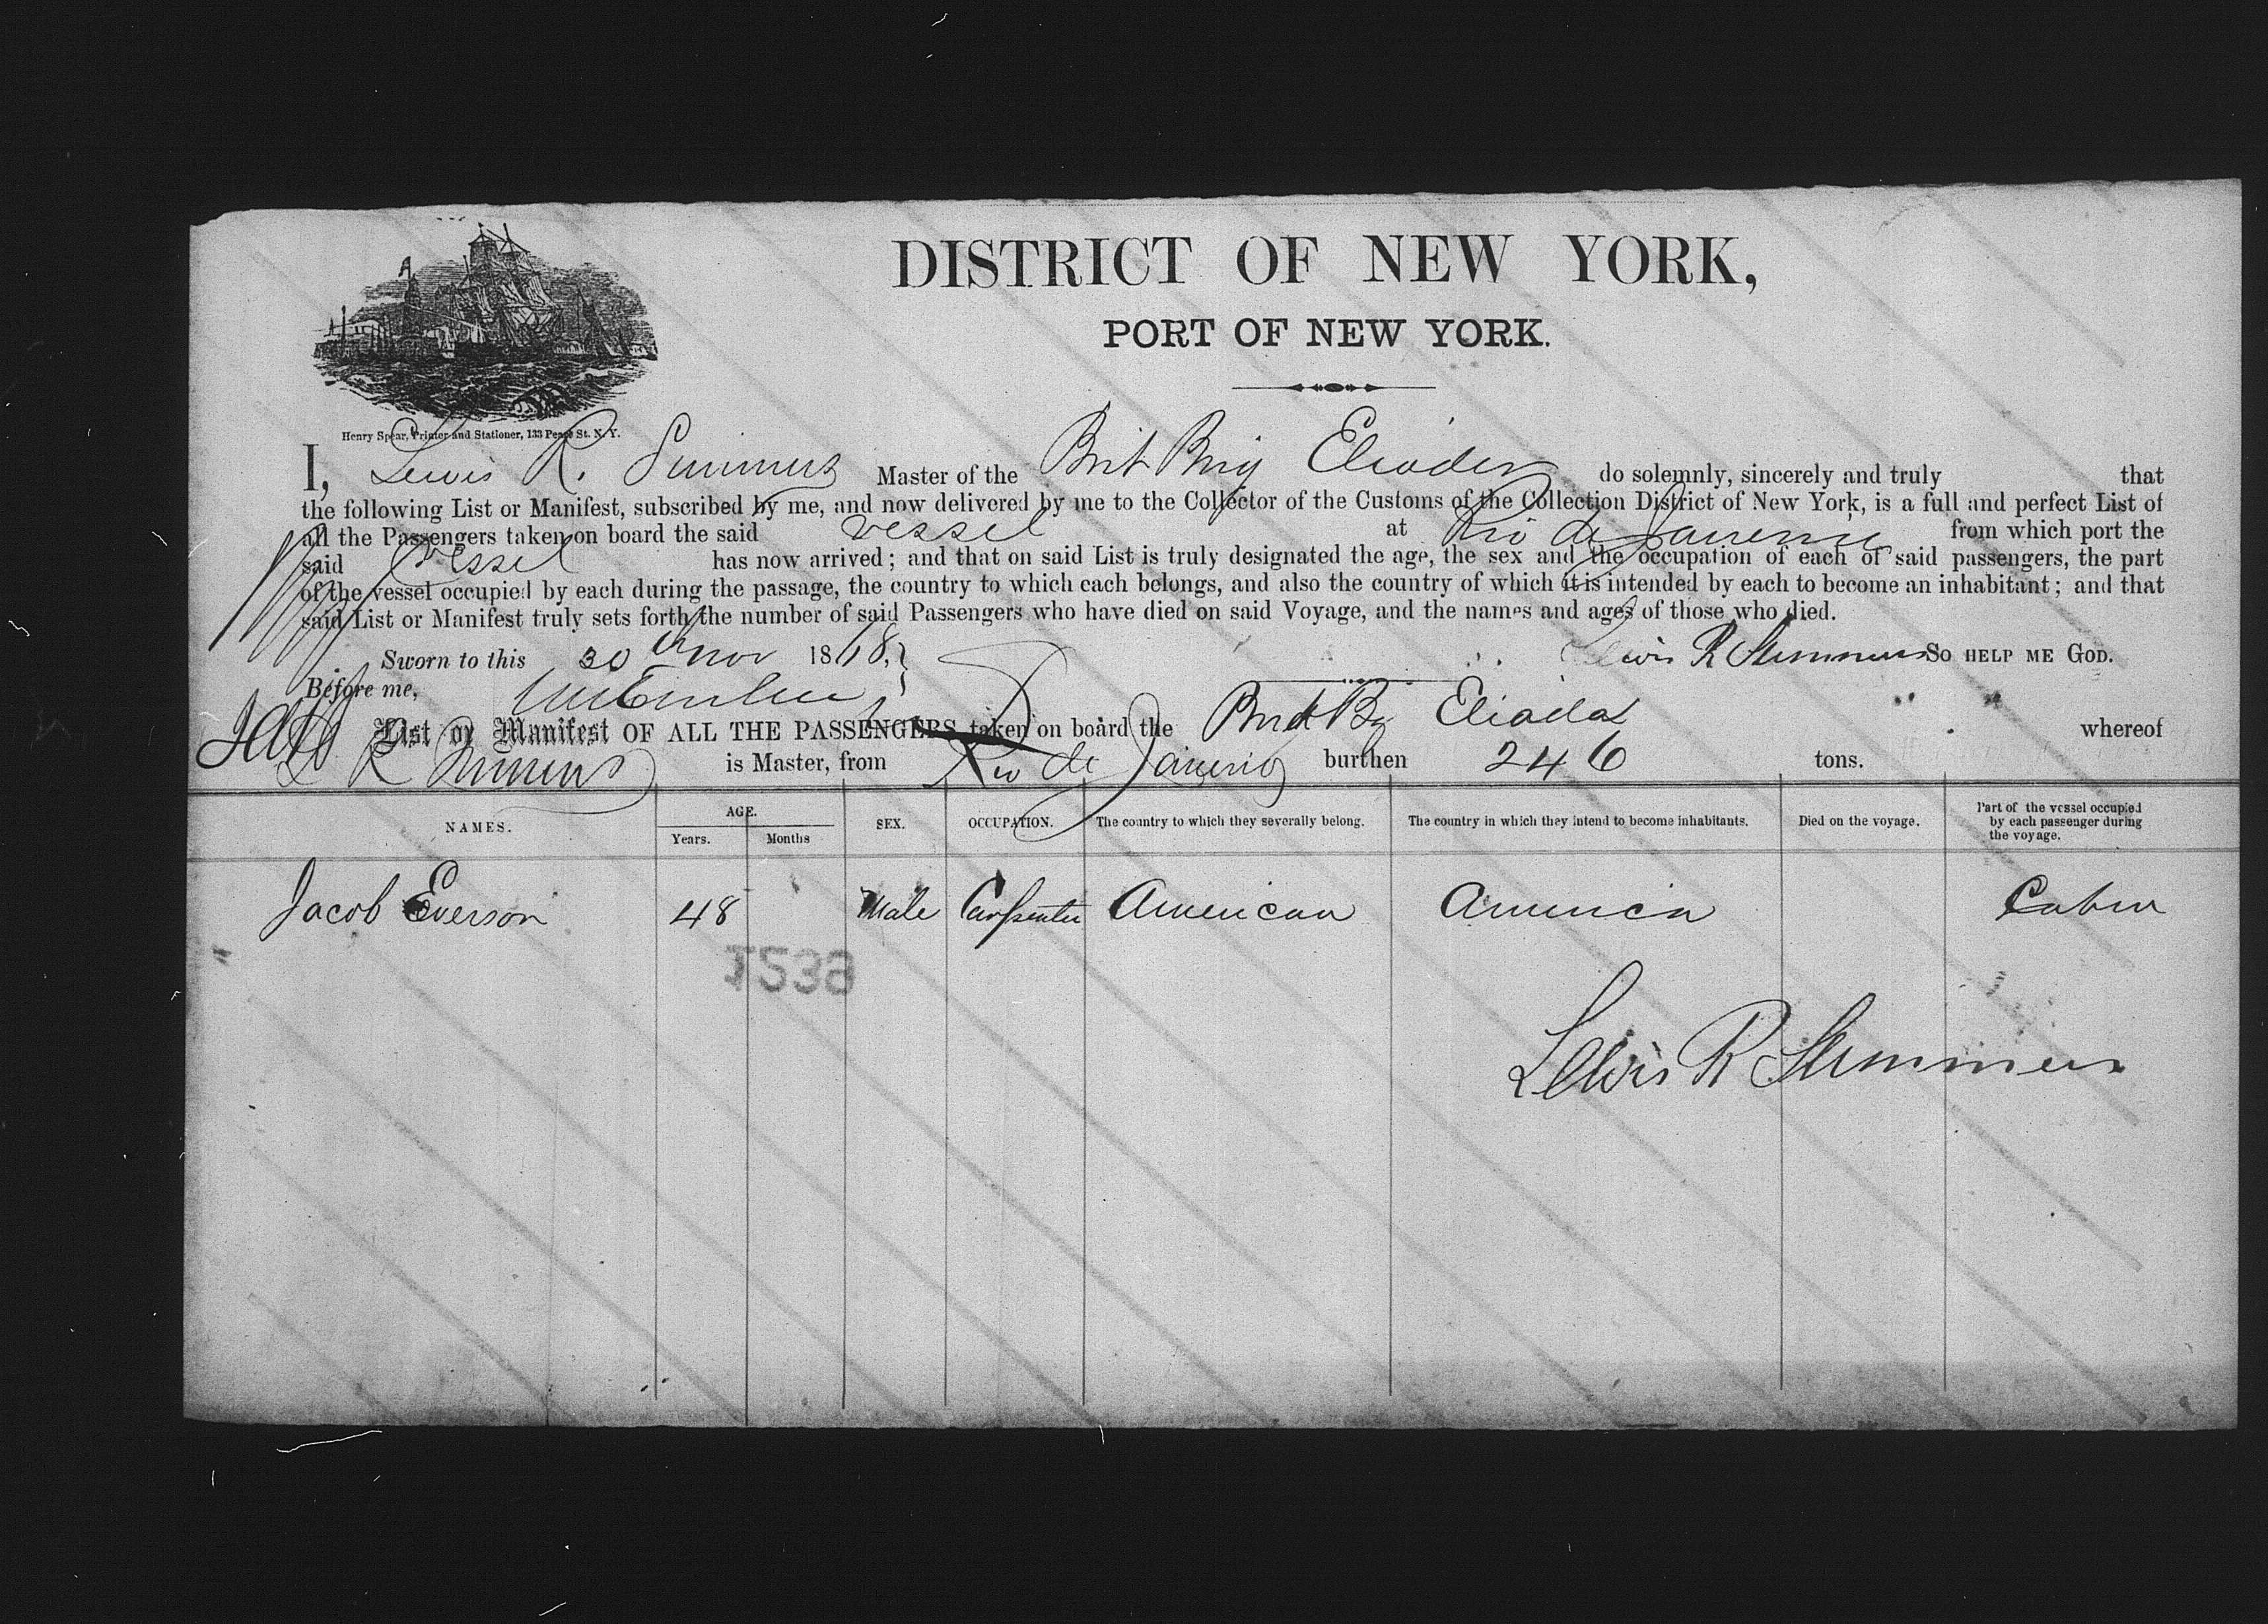 DISTRICT OF NEW YORK,
PORT OF NEW YORK.
Henry Spear, Printer and Stationer, 133 Pearl St. N. Y.
I, Lewis R. Summers Master of the Brit Brig Eliada do solemnly, sincerely and truly that
the following List or Manifest, subscribed by me, and now delivered by me to the Collector of the Customs of the Collection District of New York, is a full and perfect List of
all the Passengers taken on board the said vessel at Rio de Janeiro from which port the
said vessel has now arrived; and that on said List is truly designated the age, the sex and the occupation of each of said passengers, the part
of the vessel occupied by each during the passage, the country to which each belongs, and also the country of which it is intended by each to become an inhabitant; and that
said List or Manifest truly sets forth the number of said Passengers who have died on said Voyage, and the names and ages of those who died.
Sworn to this 30th Nov 1868, Lewis R Summers SO HELP ME GOD.
Before me,
List or Manifest OF ALL THE PASSENGERS taken on board the Brit Bg Eliada whereof
L R Summers is Master, from Rio de Janerio burthen 246 tons.
NAMES. AGE. SEX. OCCUPATION. The country to which they severally belong. The country in which they intend to become inhabitants. Died on the voyage. Part of the vessel occupied by each passenger during the voyage.
Years. Months
Jacob Everson 48 Male Carpenter American America Cabin
1538
Lewis R Summers